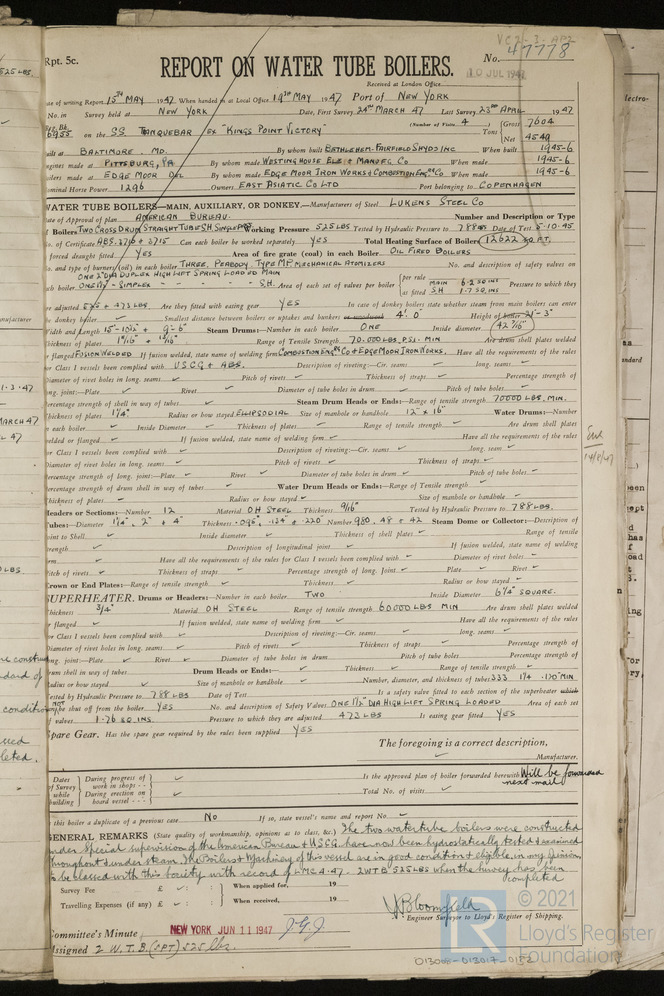 Rpt. 5c.
VC 2-3-AP2
No. 47778
REPORT ON WATER TUBE BOILERS.
10 JUL 1947
Received at London Office
ate of writing Report 15TH MAY 1947 When handed in at Local Office 19TH MAY 1947 Port of NEW YORK
No. in Survey held at NEW YORK Date, First Survey 24TH MARCH 47 Last Survey 23RD APRIL 1947
Reg. Bk. (Number of Visits 4) Gross 7604
on the SS TRANQUEBAR EX "KINGS POINT VICTORY" Tons Net 4549
uilt at BALTIMORE. MD. By whom built BETHLEHEM-FAIRFIELD SHYD INC When built 1945-6
ngines made at PITTSBURG, PA By whom made WESTINGHOUSE ELE & MANUFG. CO When made 1945-6
oilers made at EDGE MOOR DEL By whom made EDGE MOOR IRON WORKS & COMBUSTION ENGRG CO When made 1945-6
ominal Horse Power 1296 Owners EAST ASIATIC CO LTD Port belonging to COPENHAGEN
WATER TUBE BOILERS—MAIN, AUXILIARY, OR DONKEY.—Manufacturers of Steel LUKENS STEEL CO
ate of Approval of plan AMERICAN BUREAU. Number and Description or Type
f Boilers TWO CROSS DRUM STRAIGHT TUBE SH. SINGLE PASS Working Pressure 525 LBS Tested by Hydraulic Pressure to 788 LBS Date of Test 5-10-45
o. of Certificate ABS. 3716 & 3715 Can each boiler be worked separately YES Total Heating Surface of Boilers 12622 SQ. FT.
forced draught fitted YES Area of fire grate (coal) in each Boiler OIL FIRED BOILERS
o. and type of burners (oil) in each boiler THREE, PEABODY TYPE MF MECHANICAL ATOMIZERS No. and description of safety valves on
ONE 2" DIA DUPLEX HIGH LIFT SPRING LOADED MAIN
ach boiler ONE 1½" - SIMPLEX " " " " S.H. Area of each set of valves per boiler per rule MAIN 6.2 SQ INS as fitted S.H. 1.7 SQ INS Pressure to which they
re adjusted 525 & 473 LBS Are they fitted with easing gear YES In case of donkey boilers state whether steam from main boilers can enter
he donkey boiler Smallest distance between boilers or uptakes and bunkers or woodwork 4'. 0" Height of boiler 21'-3"
Width and Length 15'-10½" & 9'-6" Steam Drums:—Number in each boiler ONE Inside diameter 42 7/16"
hickness of plates 1 9/16" & 13/16" Range of Tensile Strength 70.000 LBS. P.S.I. MIN Are drum shell plates welded
r flanged FUSION WELDED If fusion welded, state name of welding firm COMBUSTION ENGRG CO & EDGE MOOR IRON WORKS. Have all the requirements of the rules
or Class I vessels been complied with U.S.C.G & ABS. Description of riveting:—Cir. seams long. seams
iameter of rivet holes in long. seams Pitch of rivets Thickness of straps Percentage strength of
ng. joint:—Plate Rivet Diameter of tube holes in drum Pitch of tube holes
ercentage strength of shell in way of tubes Steam Drum Heads or Ends:—Range of tensile strength 70000 LBS. MIN.
hickness of plates 1¼" Radius or how stayed ELLIPSODIAL Size of manhole or handhole 12" x 16" Water Drums:—Number
n each boiler Inside Diameter Thickness of plates Range of tensile strength Are drum shell plates
elded or flanged If fusion welded, state name of welding firm Have all the requirements of the rules
or Class I vessels been complied with Description of riveting:—Cir. seams long. seam
iameter of rivet holes in long. seams Pitch of rivets Thickness of straps
ercentage strength of long. joint:—Plate Rivet Diameter of tube holes in drum Pitch of tube holes
ercentage strength of drum shell in way of tubes Water Drum Heads or Ends:—Range of Tensile strength
hickness of plates Radius or how stayed Size of manhole or handhole
eaders or Sections:—Number 12 Material OH STEEL Thickness 9/16" Tested by Hydraulic Pressure to 788 LBS.
ubes:—Diameter 1¼", 2" & 4" Thickness .095", .134 & .220 Number 980, 48 & 42 Steam Dome or Collector:—Description of
oint to Shell Inside diameter Thickness of shell plates Range of tensile
rength Description of longitudinal joint If fusion welded, state name of welding
rm Have all the requirements of the rules for Class I vessels been complied with Diameter of rivet holes
itch of rivets Thickness of straps Percentage strength of long. Joint Plate Rivet
rown or End Plates:—Range of tensile strength Thickness Radius or how stayed
SUPERHEATER. Drums or Headers:—Number in each boiler TWO Inside Diameter 6¼" SQUARE.
hickness ¾" Material OH STEEL Range of tensile strength 60000 LBS MIN Are drum shell plates welded
r flanged If fusion welded, state name of welding firm Have all the requirements of the rules
or Class I vessels been complied with Description of riveting:—Cir. seams long. seams
iameter of rivet holes in long. seams Pitch of rivets Thickness of straps Percentage strength of
ong. joint:—Plate Rivet Diameter of tube holes in drum Pitch of tube holes Percentage strength of
rum shell in way of tubes Drum Heads or Ends:—Thickness Range of tensile strength
adius or how stayed Size of manhole or handhole Number, diameter, and thickness of tubes 333 1¼ .120" MIN
ested by Hydraulic Pressure to 788 LBS Date of Test Is a safety valve fitted to each section of the superheater which
not be shut off from the boiler YES No. and description of Safety Valves ONE 1½" DIA HIGH LIFT SPRING LOADED Area of each set
f valves 1.76 SQ. INS. Pressure to which they are adjusted 473 LBS Is easing gear fitted YES
Spare Gear. Has the spare gear required by the rules been supplied YES
The foregoing is a correct description,
Manufacturer.
Dates of Survey while building During progress of work in shops - - During erection on board vessel - - - Is the approved plan of boiler forwarded herewith Will be forwarded next mail
Total No. of visits
s this boiler a duplicate of a previous case No If so, state vessel's name and report No.
GENERAL REMARKS (State quality of workmanship, opinions as to class, &c.) The two watertube boilers were constructed
under special supervision of the American Bureau & USCG. have now been hydrostatically tested & examined
throughout & under steam. The Boilers & Machinery of this vessel are in good condition & eligible, in my opinion
to be classed with this Society with record of LMC 4.47 - 2WTB 525 LBS when the survey has been
completed
Survey Fee £ : : When applied for, 19
Travelling Expenses (if any) £ : : When received, 19
J Bloomfield
Engineer Surveyor to Lloyd's Register of Shipping.
Committee's Minute NEW YORK JUN 11 1947
Assigned 2 W.T.B. (SPT) 525 lbs.
© 2021
Lloyd's Register
Foundation
013008-013017-0152